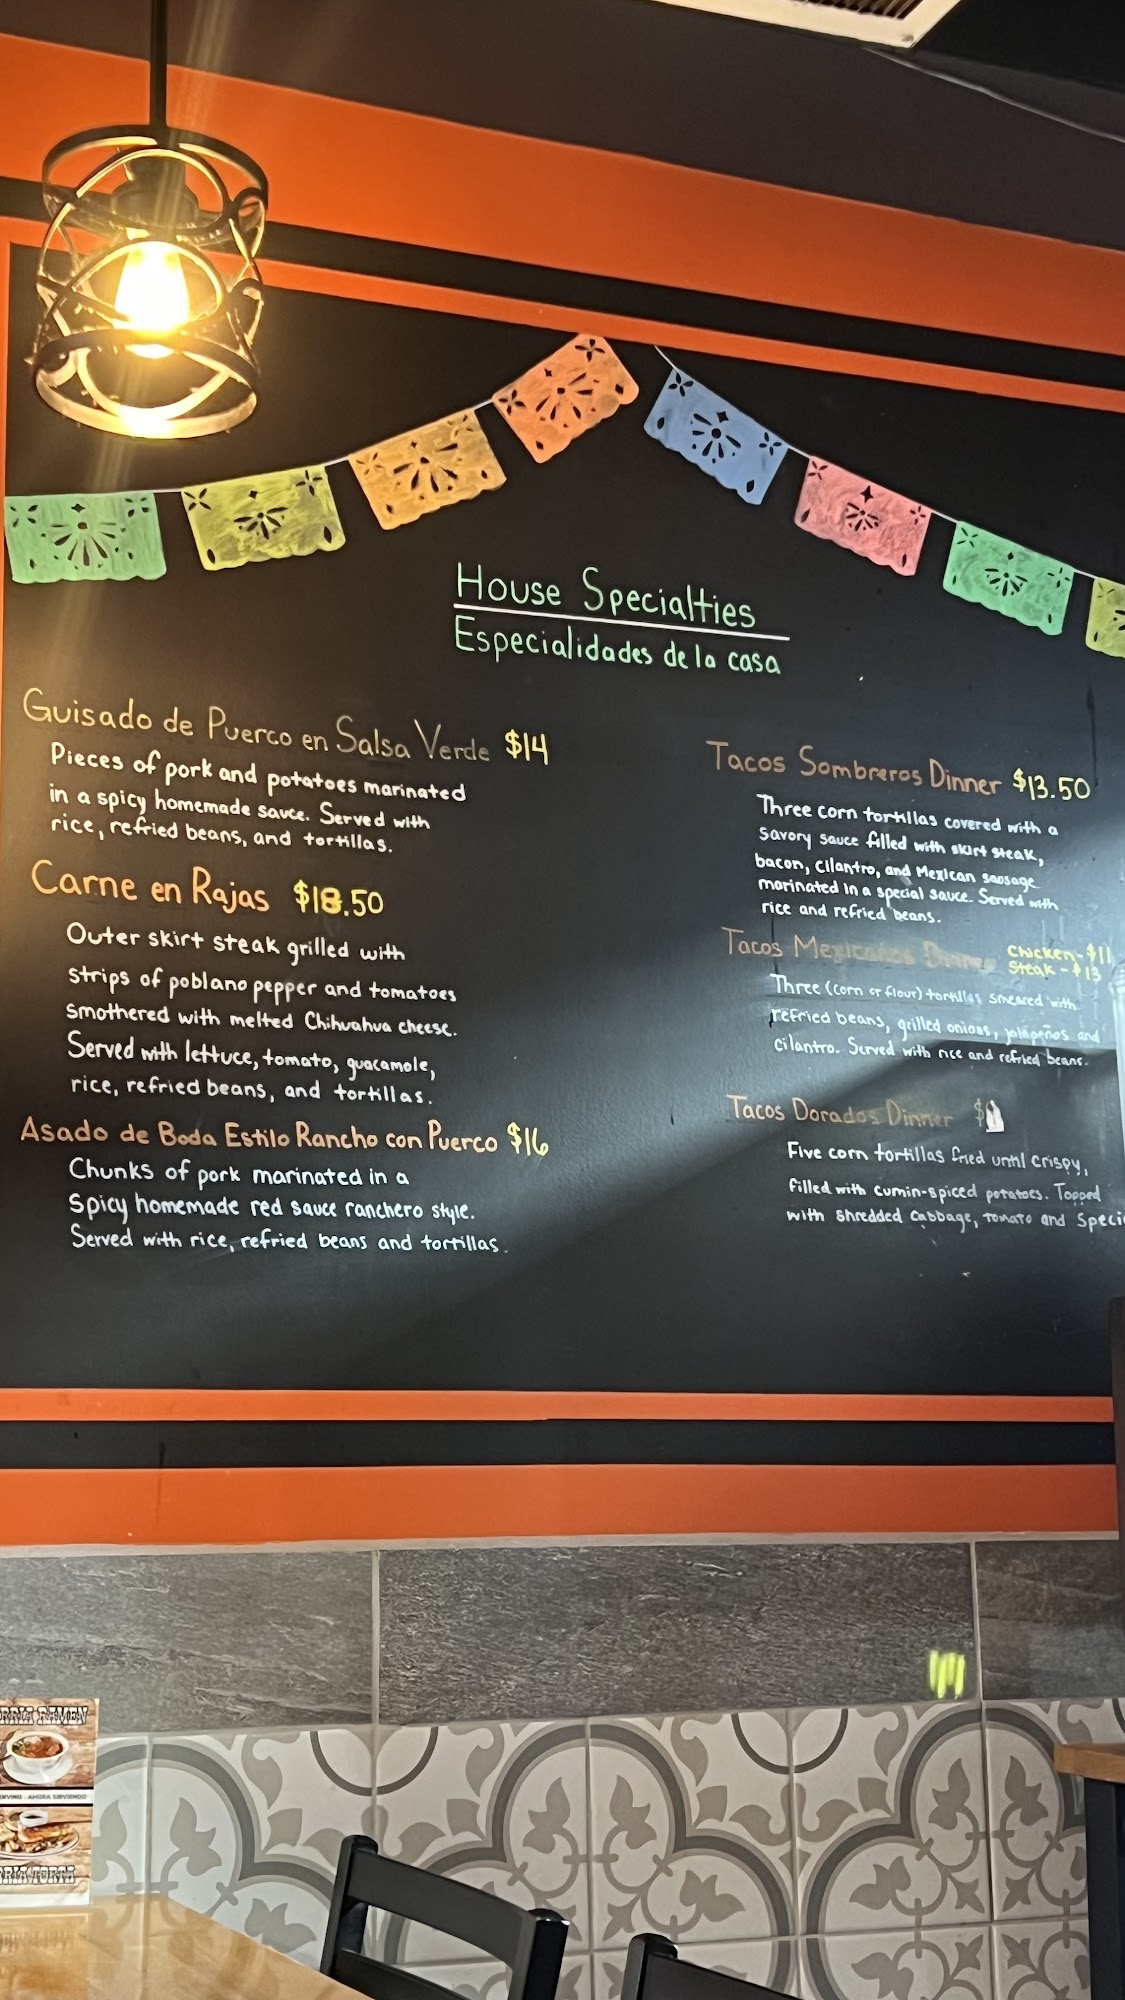 House Specialties
Especialidades de la casa
Guisado de Puerco en Salsa Verde $14
Pieces of pork and potatoes marinated
in a spicy homemade sauce. Served with
rice, refried beans, and tortillas.
Carne en Rajas $18.50
Outer skirt steak grilled with
strips of poblano pepper and tomatoes
smothered with melted Chihuahua cheese.
Served with lettuce, tomato, guacamole,
rice, refried beans, and tortillas.
Asado de Boda Estilo Rancho con Puerco $16
Chunks of pork marinated in a
spicy homemade red sauce ranchero style.
Served with rice, refried beans and tortillas.
Tacos Sombreros Dinner $13.50
Three corn tortillas covered with a
savory sauce filled with skirt steak,
bacon, cilantro, and Mexican sausage
marinated in a special sauce. Served with
rice and refried beans.
Tacos Mexicanos Dinner Chicken - $11
Steak - $13
Three (corn or flour) tortillas smeared with
refried beans, grilled onions, jalapeños and
cilantro. Served with rice and refried beans.
Tacos Dorados Dinner $
Five corn tortillas fried until crispy,
filled with cumin-spiced potatoes. Topped
with shredded cabbage, tomato and Speci
RAMEN
AHORA SIRVIENDO
TORTA